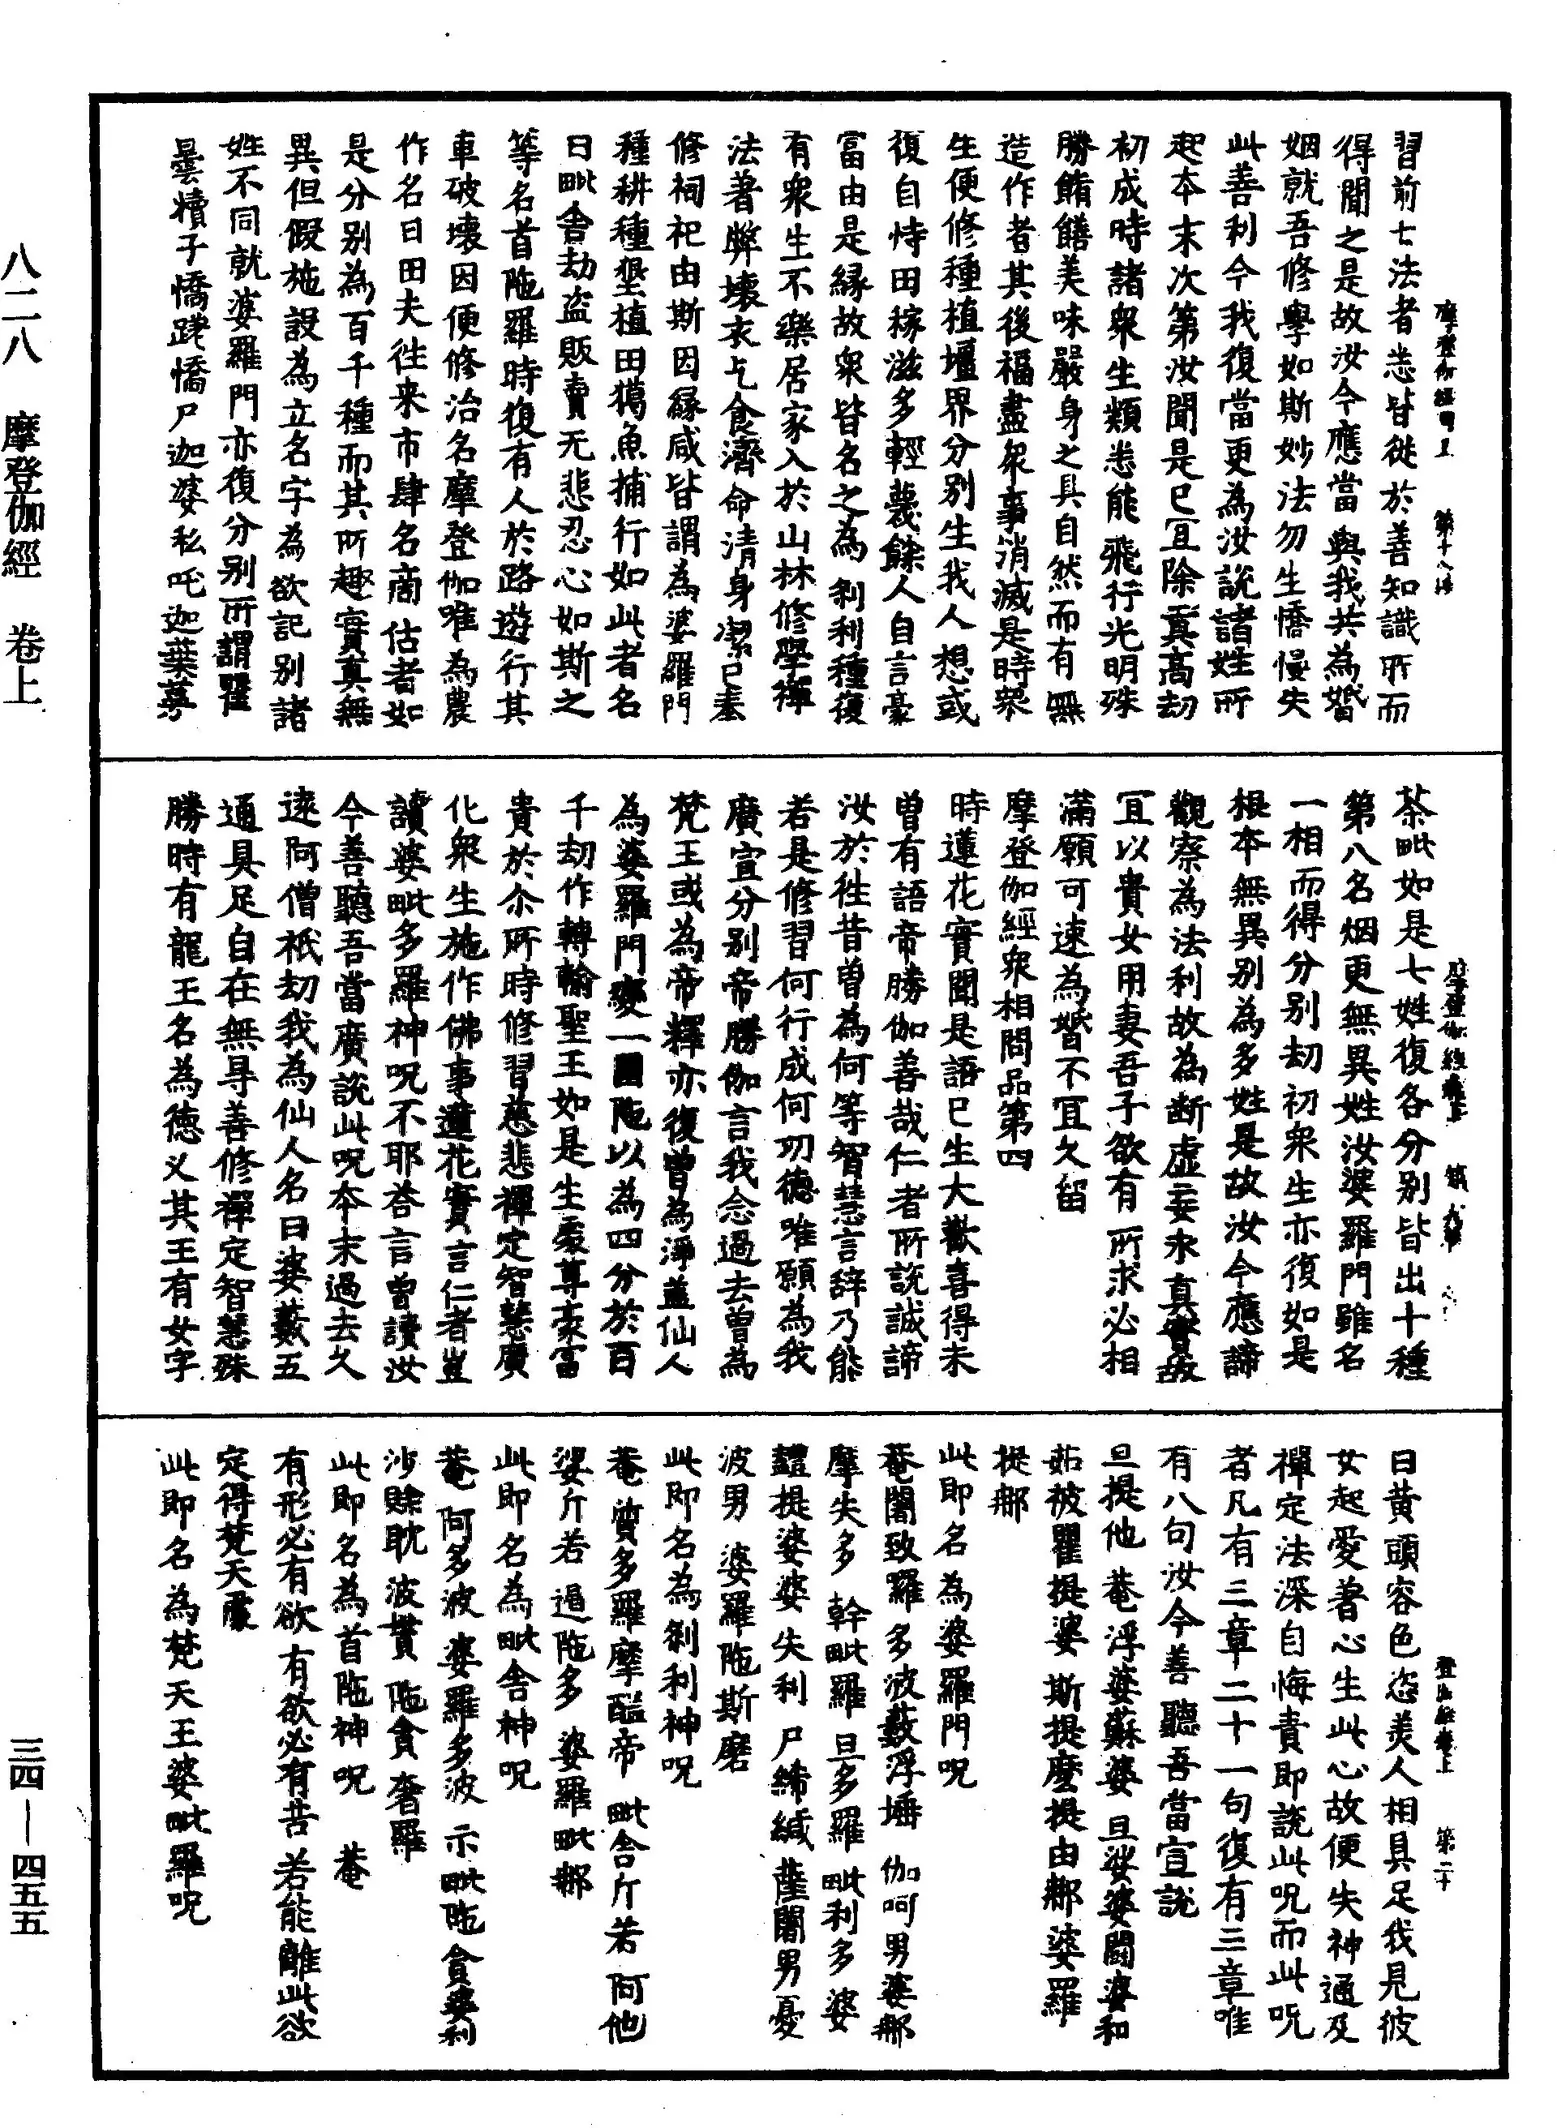 摩登伽經卷上　第十八張
習前七法者悉皆從於善知識所而
得聞之是故汝今應當與我共為婚
姻就吾修學如斯妙法勿生憍慢失
此善利今我復當更為汝說諸姓所
起本末次第汝聞是已宜除真高劫
初成時諸衆生類悉能飛行光明殊
勝餚饍美味嚴身之具自然而有無
造作者其後福盡衆事消滅是時衆
生便修種植壃界分別生我人想或
復自恃田稼滋多輕蔑餘人自言豪
富由是緣故衆皆名之為刹利種復
有衆生不樂居家入於山林修學禪
法著弊壞衣乞食濟命清身潔己奉
修祠祀由斯因緣咸皆謂為婆羅門
種耕種墾植田獦魚捕行如此者名
曰毗舍劫盜販賣无悲忍心如斯之
等名首陁羅時復有人於路遊行其
車破壞因便修治名摩登伽唯為農
作名曰田夫往来市肆名商估者如
是分別為百千種而其所趣實真無
異但假施設為立名字為欲記別諸
姓不同就婆羅門亦復分別所謂瞿
曇犢子憍蹉憍尸迦婆私吒迦葉蔓
摩登伽經卷上　第十九張
茶毗如是七姓復各分別皆出十種
第八名烟更無異姓汝婆羅門雖名
一相而得分別劫初衆生亦復如是
根本無異別為多姓是故汝今應諦
觀察為法利故為斷虛妄求真實故
宜以貴女用妻吾子欲有所求必相
滿願可速為婚不宜久留
摩登伽經衆相問品第四
時蓮花實聞是語已生大歡喜得未
曽有語帝勝伽善哉仁者所說誠諦
汝於往昔曽為何等智慧言辞乃能
若是修習何行成何功德唯願為我
廣宣分別帝勝伽言我念過去曽為
梵王或為帝釋亦復曽為淨蓋仙人
為婆羅門變一圍陁以為四分於百
千劫作轉輪聖王如是生處尊豪富
貴於尒所時修習慈悲禪定智慧廣
化衆生施作佛事蓮花實言仁者豈
讀婆毗多羅神呪不耶荅言曽讀汝
今善聽吾當廣說此呪本末過去久
遠阿僧祇劫我為仙人名曰婆藪五
通具足自在無㝵善修禪定智慧殊
勝時有龍王名為德义其王有女字
登伽經卷上　第二十
曰黃頭容色恣美人相具足我見彼
女起愛著心生此心故便失神通及
禪定法深自悔責即說此呪而此呪
者凡有三章二十一句復有三章唯
有八句汝今善聽吾當宣說
旦提他 菴浮婆蘇婆 旦娑婆闘婆和
茹被瞿提婆 斯提麼提由那婆羅
提那
此即名為婆羅門呪
菴闍致羅多波藪浮埵 伽呵男婆那
摩失多 幹毗羅 旦多羅 毗利多婆
醴提婆婆失利 尸締緘薩闍男憂
波男 婆羅陁斯磨
此即名為刹利神呪
菴 質多羅摩醯帝 毗舍斤若 阿他
娑斤若 逼陁多 婆羅毗那
此即名為毗舍神呪
菴 阿多波 婆羅多波 示毗陁貪婆利
沙賒耽 波貰 陁貪奢羅
此即名為首陁神呪　菴
有形必有欲 有欲必有苦 若能離此欲
定得梵天處
此即名為梵天王婆毗羅呪
八二八　摩登伽經　卷上
三四—四五五